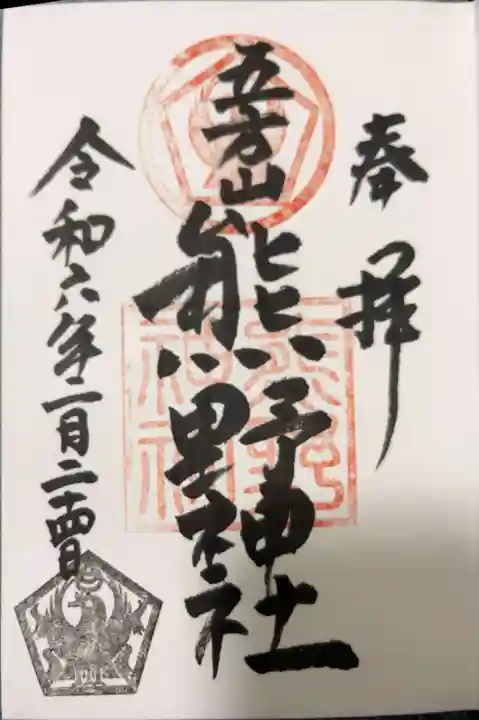 奉拝
五方山熊野神社
令和六年二月二十四日
熊野神社